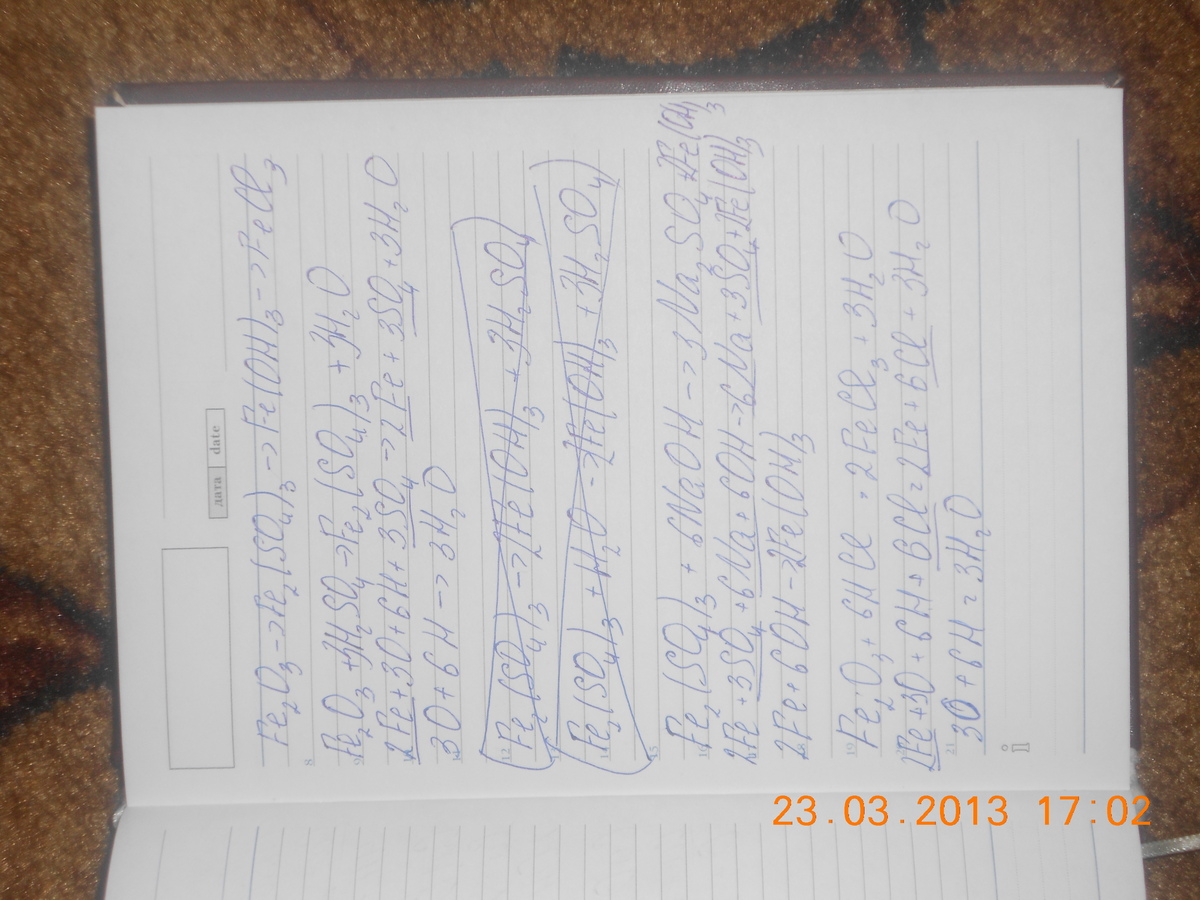 дата date
Fe2O3 -> Fe2(SO4)3 -> Fe(OH)3 -> FeCl3
8
9 Fe2O3 + 3H2SO4 -> Fe2(SO4)3 + 3H2O
2Fe + 3O + 6H + 3SO4 -> 2Fe + 3SO4 + 3H2O
3O + 6H -> 3H2O
12 Fe2(SO4)3 -> 2Fe(OH)3 + 3H2SO4
Fe2(SO4)3 + H2O -> 2Fe(OH)3 + 3H2SO4
15
16 Fe2(SO4)3 + 6NaOH -> 3Na2SO4 + 2Fe(OH)3
2Fe + 3SO4 + 6Na + 6OH -> 6Na + 3SO4 + 2Fe(OH)3
2Fe + 6OH -> 2Fe(OH)3
19 Fe2O3 + 6HCl = 2FeCl3 + 3H2O
2Fe + 3O + 6H + 6Cl = 2Fe + 6Cl + 3H2O
21 3O + 6H = 3H2O
i
23.03.2013 17:02